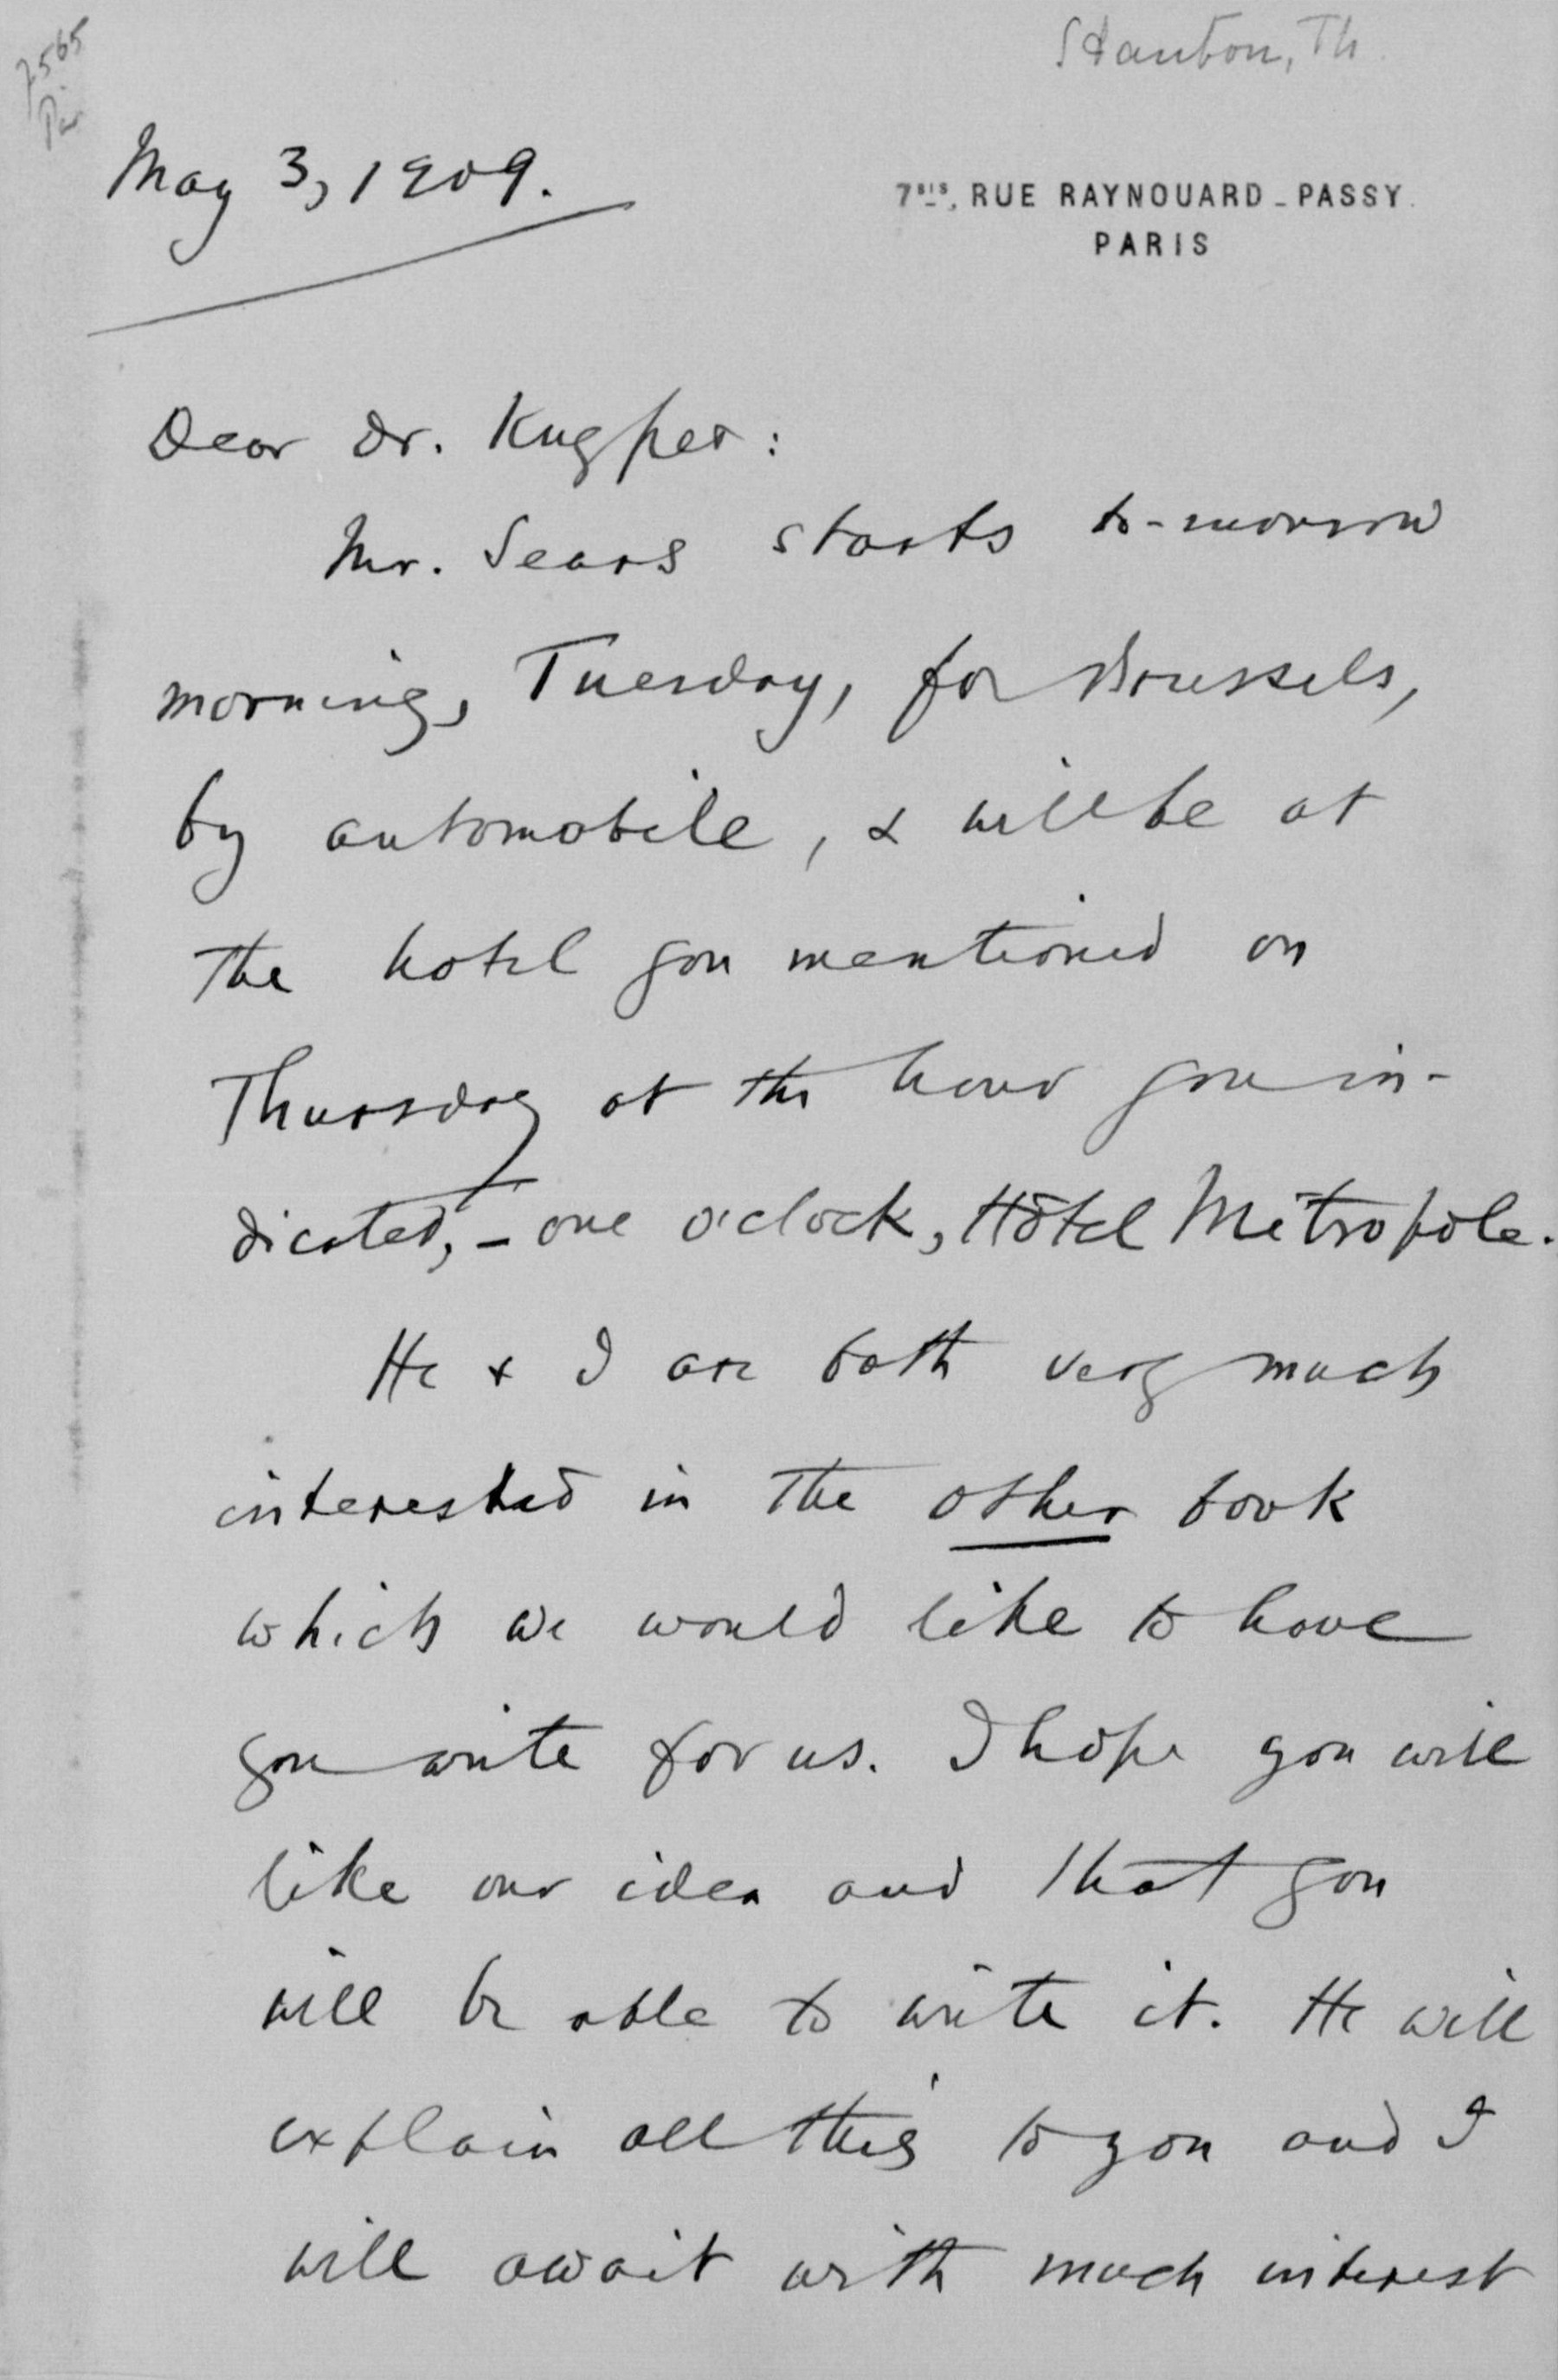 7565
Stanton, Th.
May 3, 1909.
7BIS, RUE RAYNOUARD - PASSY.
PARIS
Dear Dr. Kuyper:
Mr. Sears starts to-morrow
morning, Tuesday, for Brussels,
by automobile, & will be at
the hotel you mentioned on
Thursday at the hour you in-
dicated, - one o'clock, Hôtel Métropole.
He & I are both very much
interested in the other book
which we would like to have
you write for us. I hope you will
like our idea and that you
will be able to write it. He will
explain all this to you and I
will await with much interest